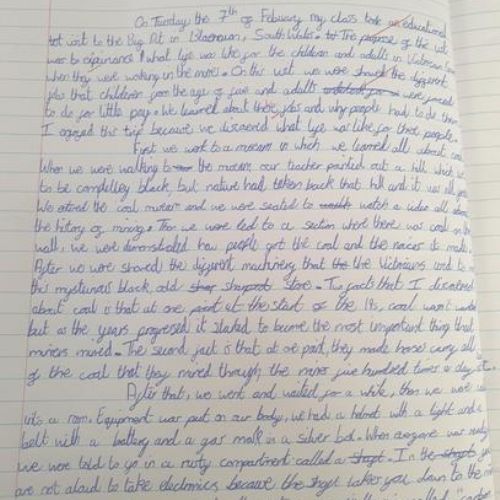 On Tuesday the 7th of February my class took an educational
visit to the Big Pit in Blaenavon, South Wales. The purpose of the visit
was to experience what lye was like for the children and adults in Victorian
when they were working in the mines. On this visit we were shown the different
jobs that children from the age of five and adults were forced
to do for little pay. We learned about these jobs and why people had to do them
I enjoyed this trip because we discovered what lye was like for these people.
First we went to a museum in which we learned all about coal
When we were walking to the museum our teacher pointed out a hill which
to be completley black, but nature had taken back that hill and it was all
We entered the coal museum and we were seated to watch a video all about
the history of mining. Then we were led to a section where there was coal on the
wall, we were demonstrated how people got the coal and the noises it made
After we were showed the different machinery that the Victorians used to
this mysterious black, odd stone. Two facts that I discovered
about coal is that at one point at the start of the 19s, coal wasn't
but as the years progressed it started to become the most important thing that
miners mined. The second fact is that at one point, they made horses carry all
of the coal that they mined through the mines five hundred times a day
After that, we went and waited for a while, then we were
into a room. Equipment was put on our body, we had a helmet with a light and a
belt with a battery and a gas mask in a silver box. When everyone was ready
we were told to go in a rusty compartment called a shaft. In the shaft
are not aloud to take electronics because the shaft takes you down to the